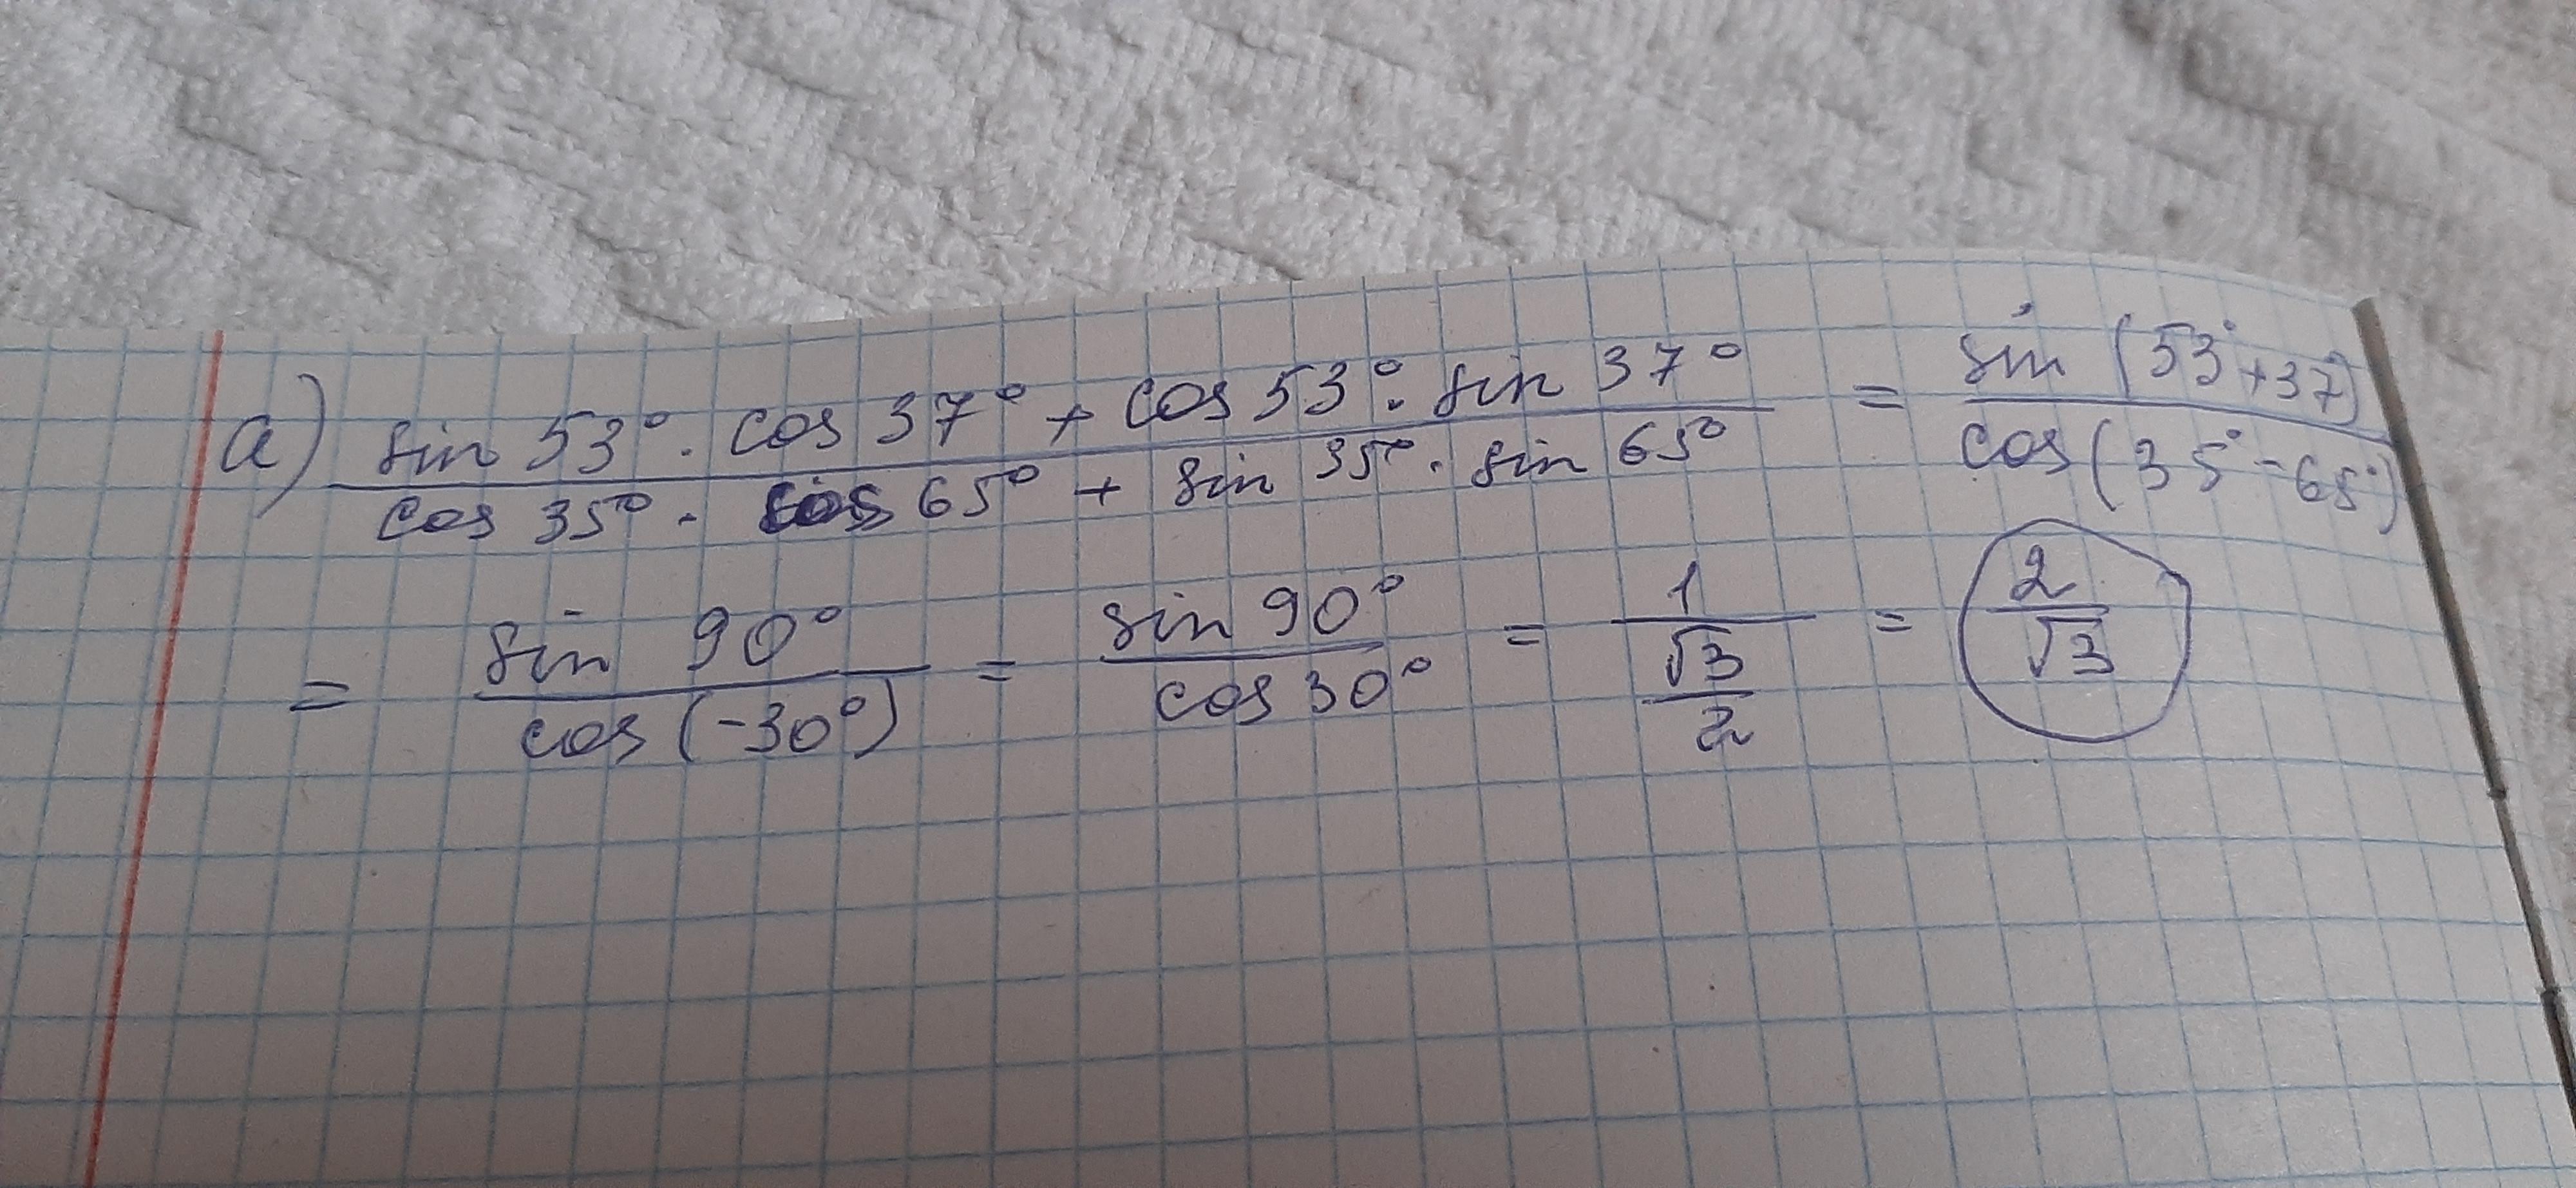 a) (sin 53° · cos 37° + cos 53° · sin 37°) / (cos 35° · cos 65° + sin 35° · sin 65°) = sin (53° + 37°) / cos (35° - 65°)
= sin 90° / cos (-30°) = sin 90° / cos 30° = 1 / (√3 / 2) = 2 / √3